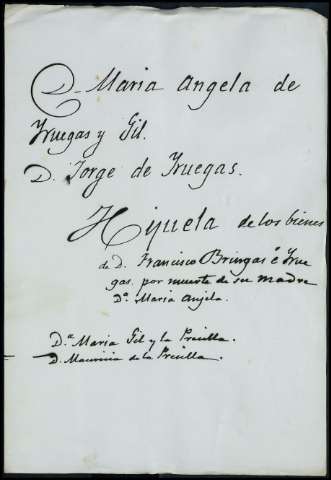 D. Maria Angela de
Yruegas y Gil.
D. Jorge de Yruegas.
Hijuela de los bienes
de D. Francisco Bringas é Yrue
gas por muerte de su madre
Dª Maria Anjela.
D.ª Maria Gil y la Presilla.
D. Mauricia de la Presilla.